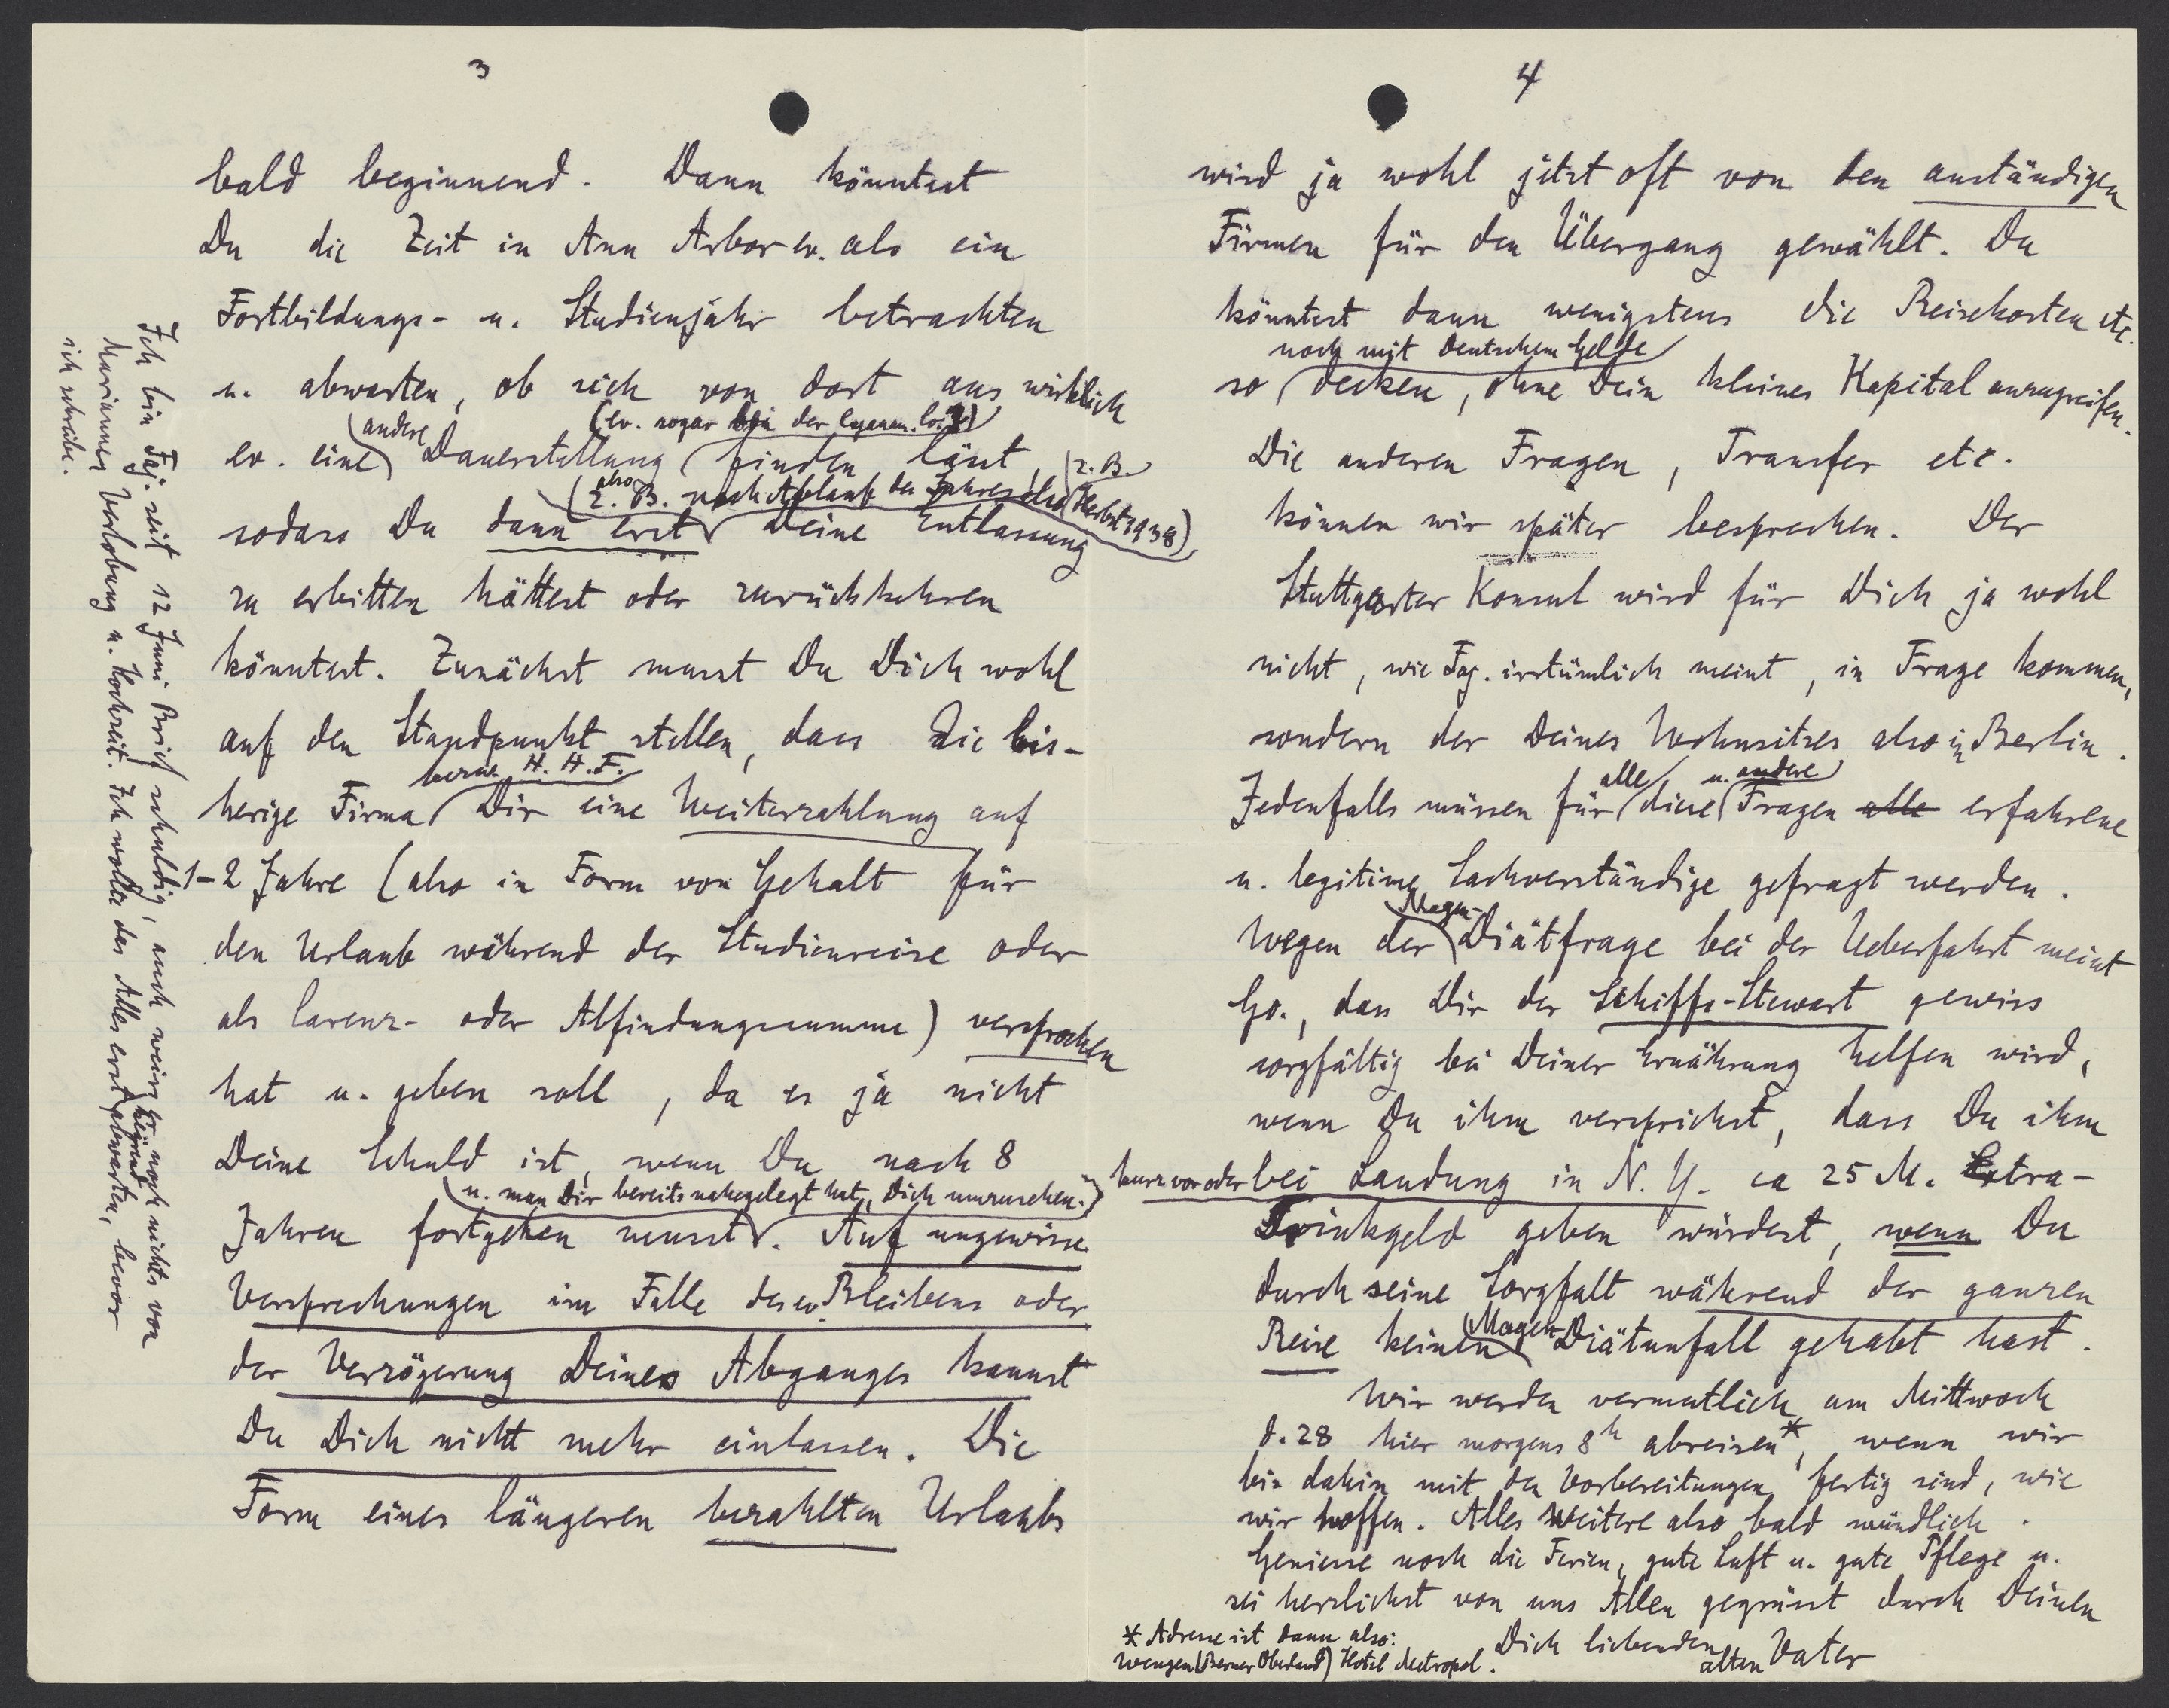 3
bald beginnend. Dann könntest
Du die Zeit in Ann Arbor ev. als ein
Fortbildungs- u. Studienjahr betrachten
u. abwarten, ob sich von dort aus wirklich
(ev. sogar bei der
ev. eine andere Dauerstellung finden lässt, z. B.
(also z. B. nach Ablauf des Jahres also Herbst 1938)
sodass Du dann erst Deine Entlassung
zu erbitten hättest oder zurückkehren
könntest. Zunächst musst Du Dich wohl
auf den Standpunkt stellen, dass Die bis-
bezw. H. H. F.
herige Firma Dir eine Weiterzahlung auf
1-2 Jahre (also in Form von Gehalt für
den Urlaub während der Studienreise oder
als Carenz- oder Abfindungssumme) versprochen
hat u. geben soll, da es ja nicht
Deine Schuld ist, wenn Du nach 8
u. man Dir bereits nahegelegt hat, Dich umzusehen.
Jahren fortgehen musst. Auf ungewisse
Versprechungen im Falle des ev. Bleibens oder
der Verzögerung Deines Abganges kannst
Du Dich nicht mehr einlassen. Die
Form eines längeren bezahlten Urlaubs
Ich bin Faj. seit 12 Juni Brief schuldig, auch weiss er noch nichts von
Mariannes Verlobung u. Hochzeit. Ich wollte das Alles erst abwarten, bevor
ich schreibe.
4
wird ja wohl jetzt oft von den anständigen
Firmen für den Übergang gewählt. Du
könntest dann wenigstens die Reisekosten etc.
noch mit Deutschem Gelde
so decken, ohne Dein kleines Kapital anzugreifen.
Die anderen Fragen, Transfer etc.
können wir später besprechen. Der
Stuttgarter Konsul wird für Dich ja wohl
nicht, wie Faj. irrtümlich meint, in Frage kommen,
sondern der Deines Wohnsitzes also in Berlin.
Jedenfalls müssen für alle diese u. andere Fragen alle erfahrene
u. legitime Sachverständige gefragt werden.
Wegen der Magen-Diätfrage bei der Ueberfahrt meint
Go., dass Dir der Schiffs-Stewart gewiss
sorgfältig bei Deiner Ernährung helfen wird,
wenn Du ihm versprichst, dass Du ihm
kurz vor oder bei Landung in N. Y. ca 25 M. Extra-
Trinkgeld geben würdest, wenn Du
durch seine Sorgfalt während der ganzen
Reise keinen Magen-Diätunfall gehabt hast.
Wir werden vermutlich am Mittwoch
d. 28 hier morgens 8h abreisen*, wenn wir
bis dahin mit den Vorbereitungen fertig sind, wie
wir hoffen. Alles Weitere also bald mündlich.
Geniesse noch die Ferien, gute Luft u. gute Pflege u.
sei herzlichst von uns Allen gegrüsst durch Deinen
Dich liebenden alten Vater
* Adresse ist dann also:
Wengen (Berner Oberland) Hotel Metropol.